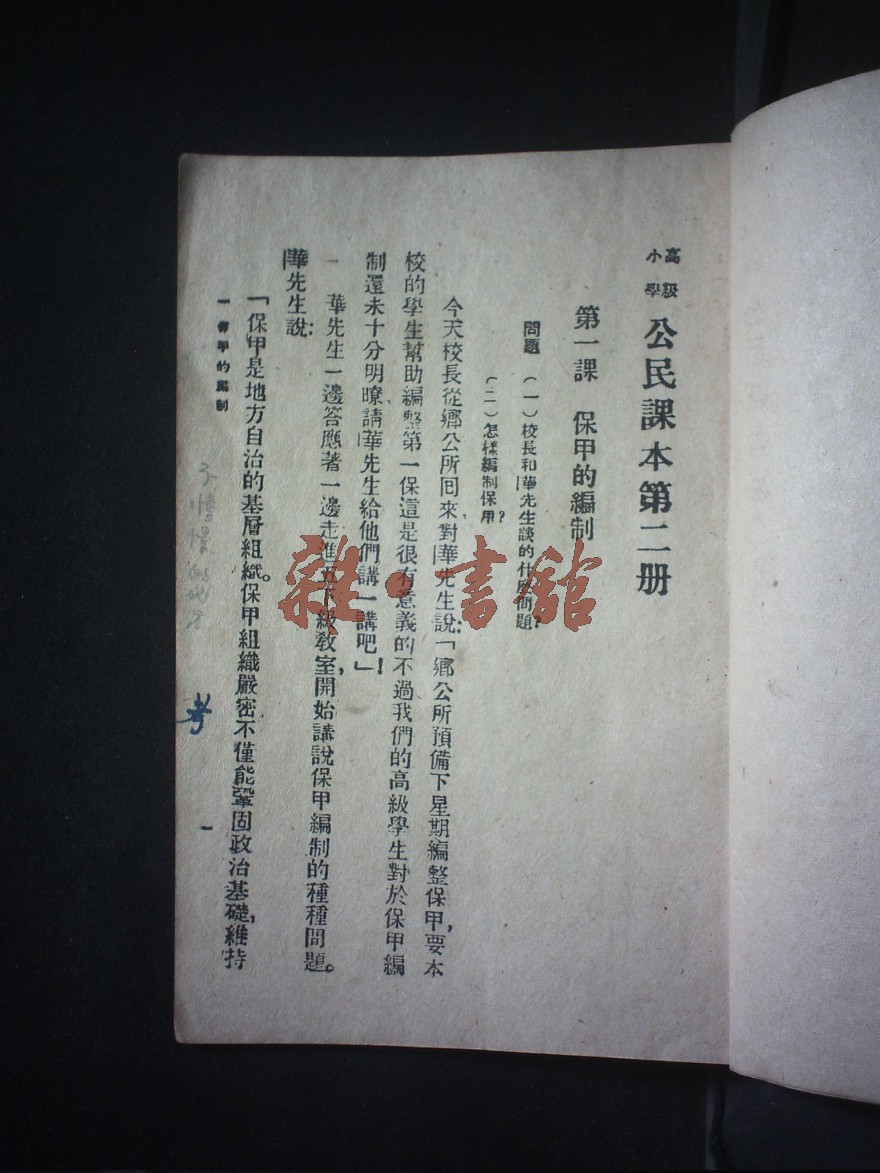 高級
小學
公民課本第二册
第一課　保甲的編制
問題　(一)校長和華先生談的什麼問題?
(二)怎樣編制保甲?
今天校長從鄉公所回來對華先生說:「鄉公所預備下星期編整保甲,要本
校的學生幫助編整第一保這是很有意義的不過我們的高級學生對於保甲編
制還未十分明瞭請華先生給他們講一講吧」!
華先生一邊答應著一邊走進五下級教室,開始講說保甲編制的種種問題。
華先生說:
「保甲是地方自治的基層組織。保甲組織嚴密不僅能鞏固政治基礎,維持
一 保甲的編制
一
考
雜·書館